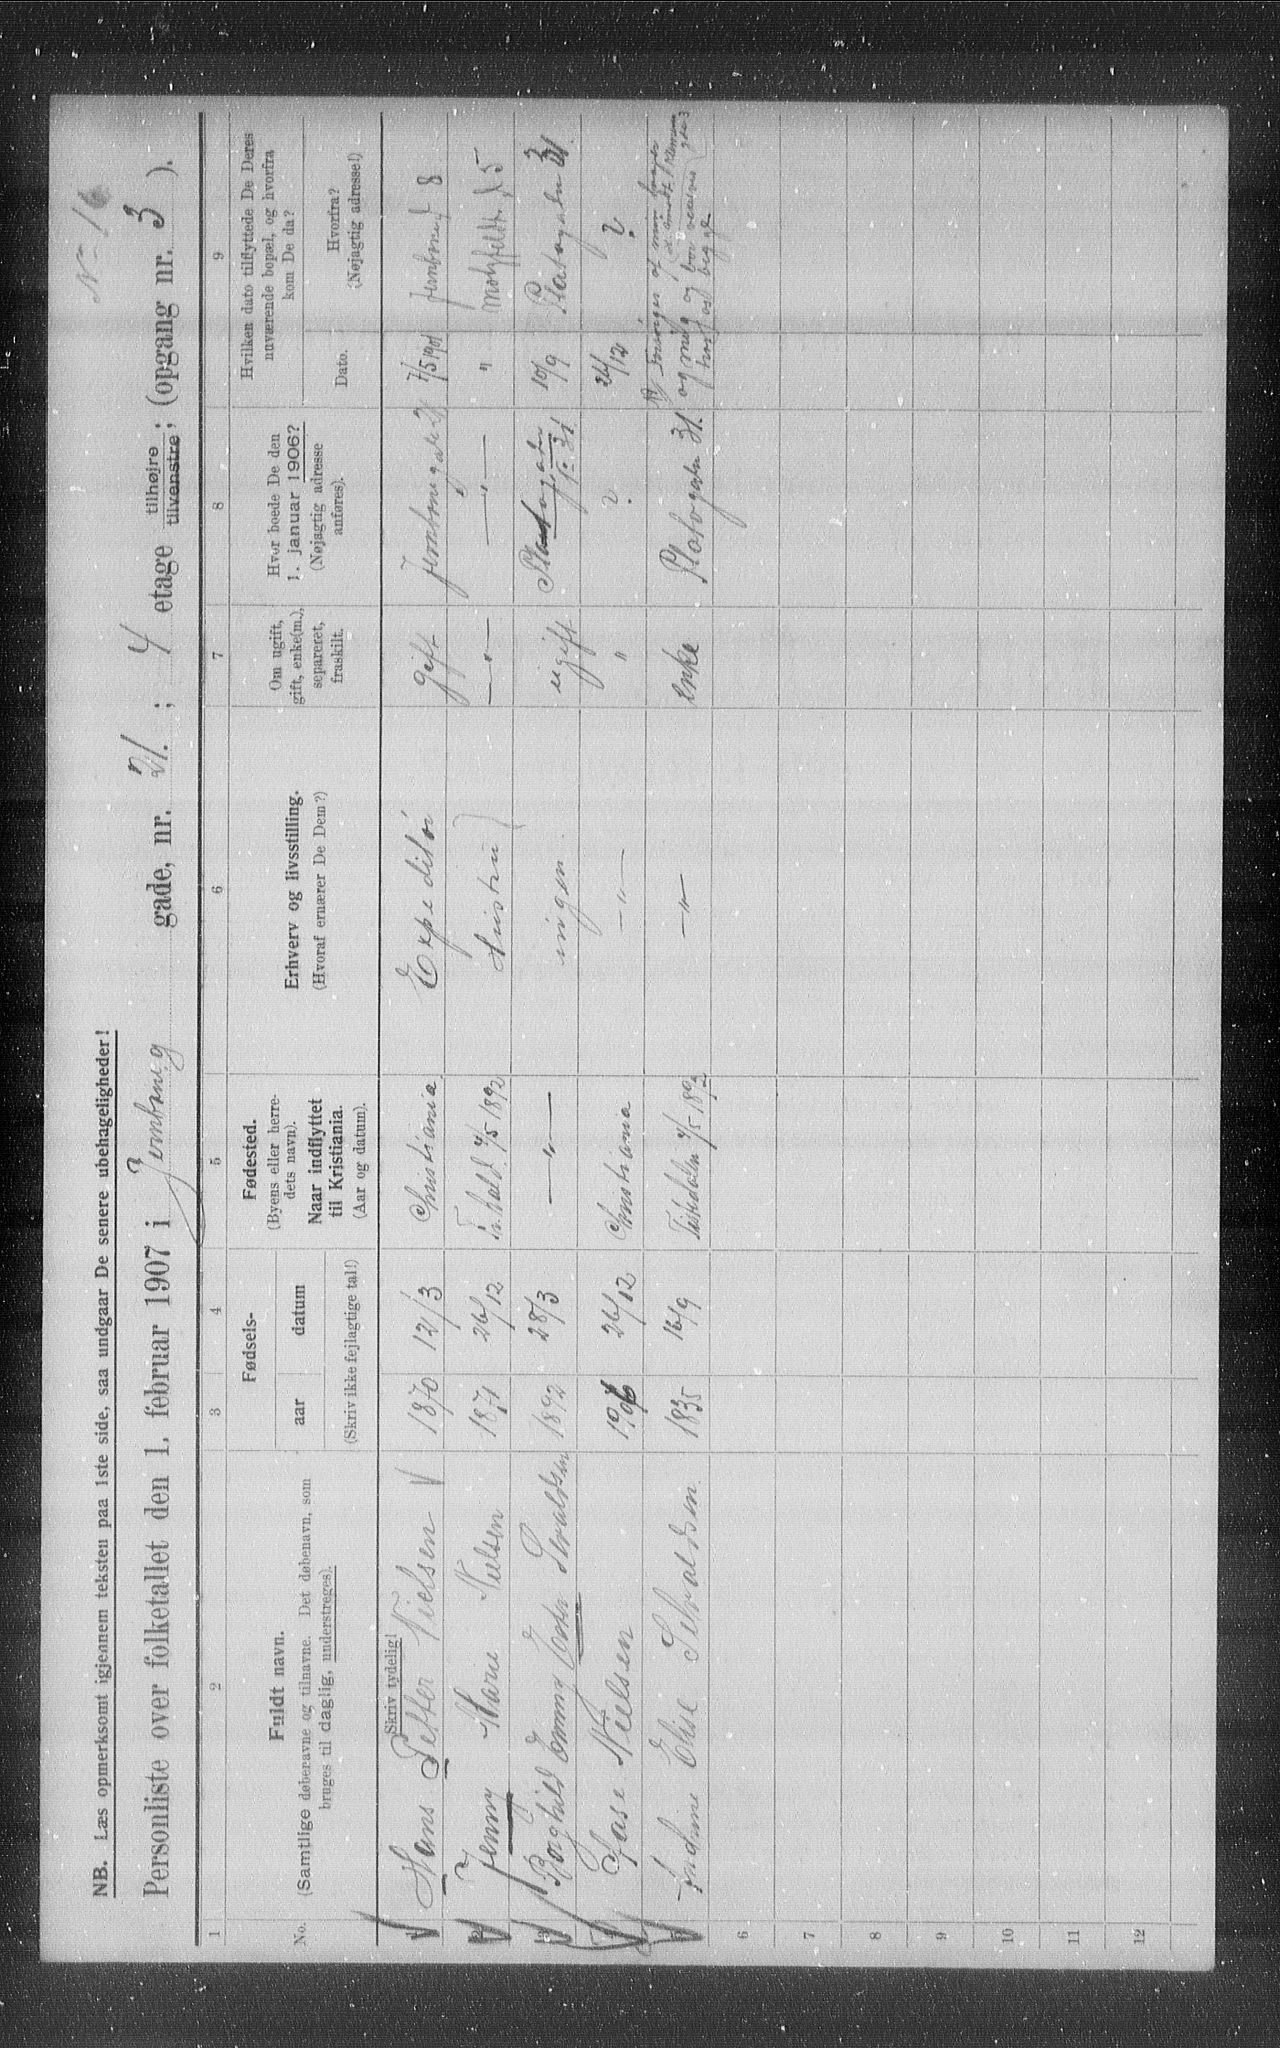 N= 16
NB. Læs opmerksomt igjennem teksten paa 1ste side, saa undgaar De senere ubehageligheder!
Personliste over folketallet den 1. februar 1907 i Jernbaneg gade, nr. 21. ; 4 etage tilhøjre tilvenstre ; (opgang nr. 3 ).
1 2 3 4 5 6 7 8 9
No.
Fuldt navn.
(Samtlige døbenavne og tilnavne. Det døbenavn, som
bruges til daglig, understreges).
Skriv tydelig!
Fødsels-
aar datum
(Skriv ikke fejlagtige tal!)
Fødested.
(Byens eller herre-
dets navn).
Naar indflyttet
til Kristiania.
(Aar og datum).
Erhverv og livsstilling.
(Hvoraf ernærer De Dem?)
Om ugift,
gift, enke(m.),
separeret,
fraskilt.
Hvor boede De den
1. januar 1906?
(Nøjagtig adresse
anføres).
Hvilken dato tilflyttede De Deres
nuværende bopæl, og hvorfra
kom De da?
Dato.
Hvorfra?
(Nøjagtig adresse!)
1 Hans Petter Nielsen 1870 12/3 Christiania Expeditör gift 1/5 1901 8
2 Jenny Marie Nielsen 1871 26/12 Fr.hald. 4/5 1892 Hustru —"— —"— " 5
3 Borghild Emmy 1892 28/3 —"— ingen ugift Platogaten No 31 10/9 Platogaten 31
4 Aase Nielsen 1906 26/12 Christiania —"— " ? 26/12 ?
5 Andrine Elise 1835 16/9 Tistedalen 4/5 1892 —"— Enke Platogaten 31.
6
7
8
9
10
11
12